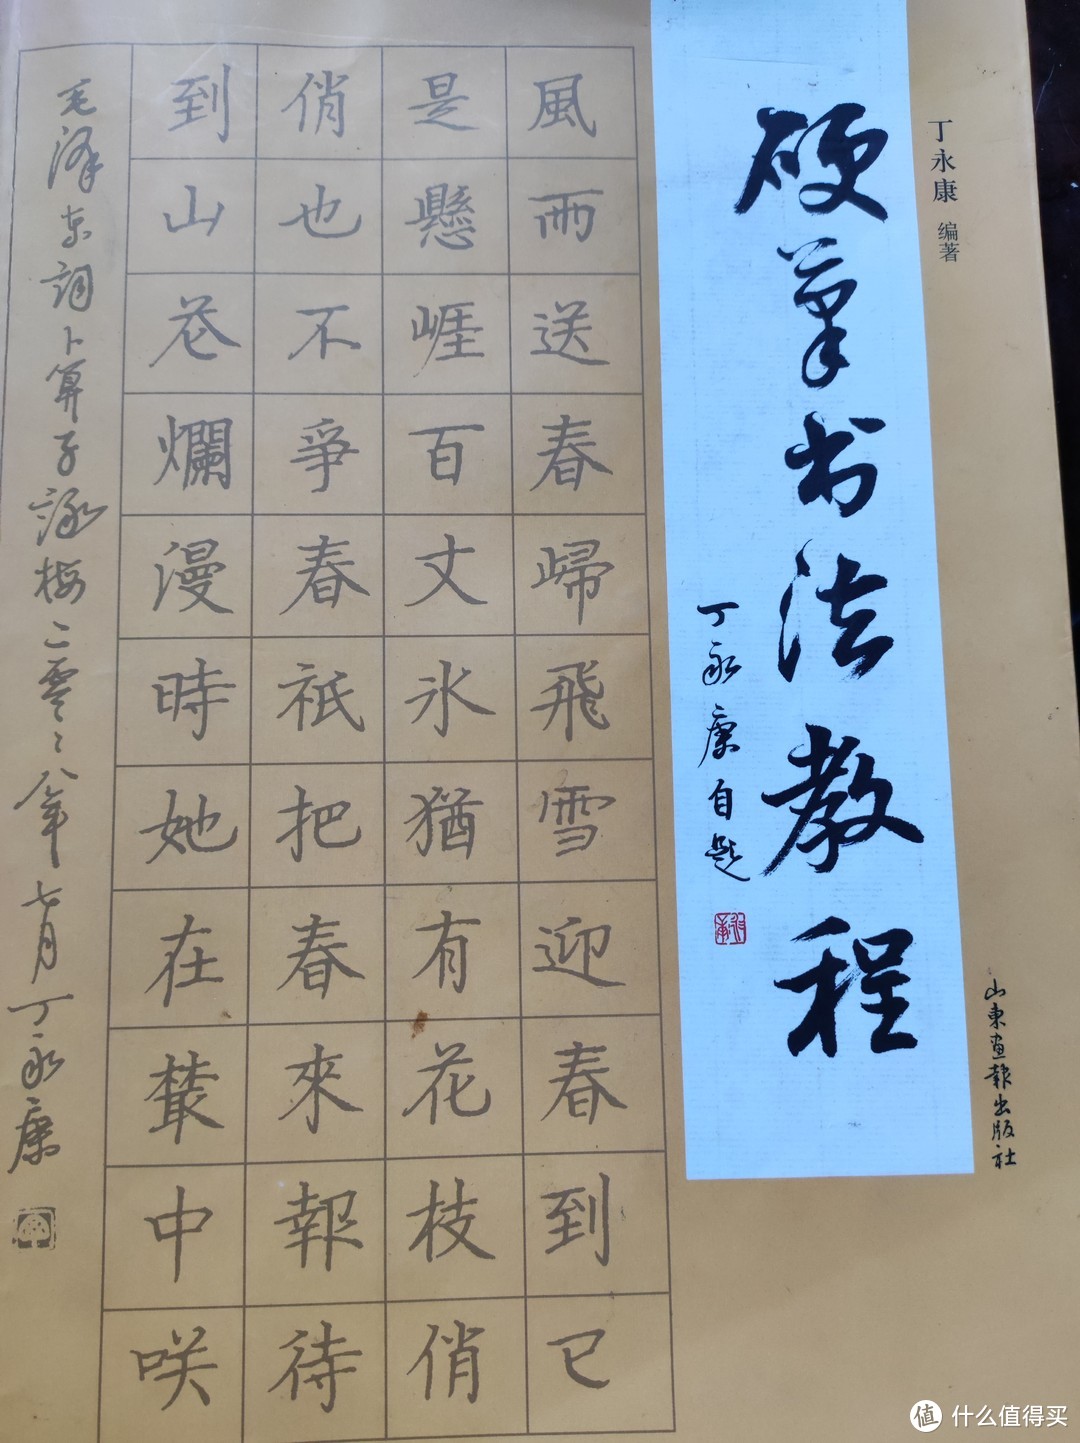 丁永康 编著
山東画報出版社
硬笔书法教程
丁永康自题
風雨送春歸飛雪迎春到已
是懸崖百丈氷猶有花枝俏
俏也不爭春祇把春來報待
到山花爛漫時她在叢中咲
毛泽东詞卜算子詠梅二零零八年七月丁永康
值 什么值得买